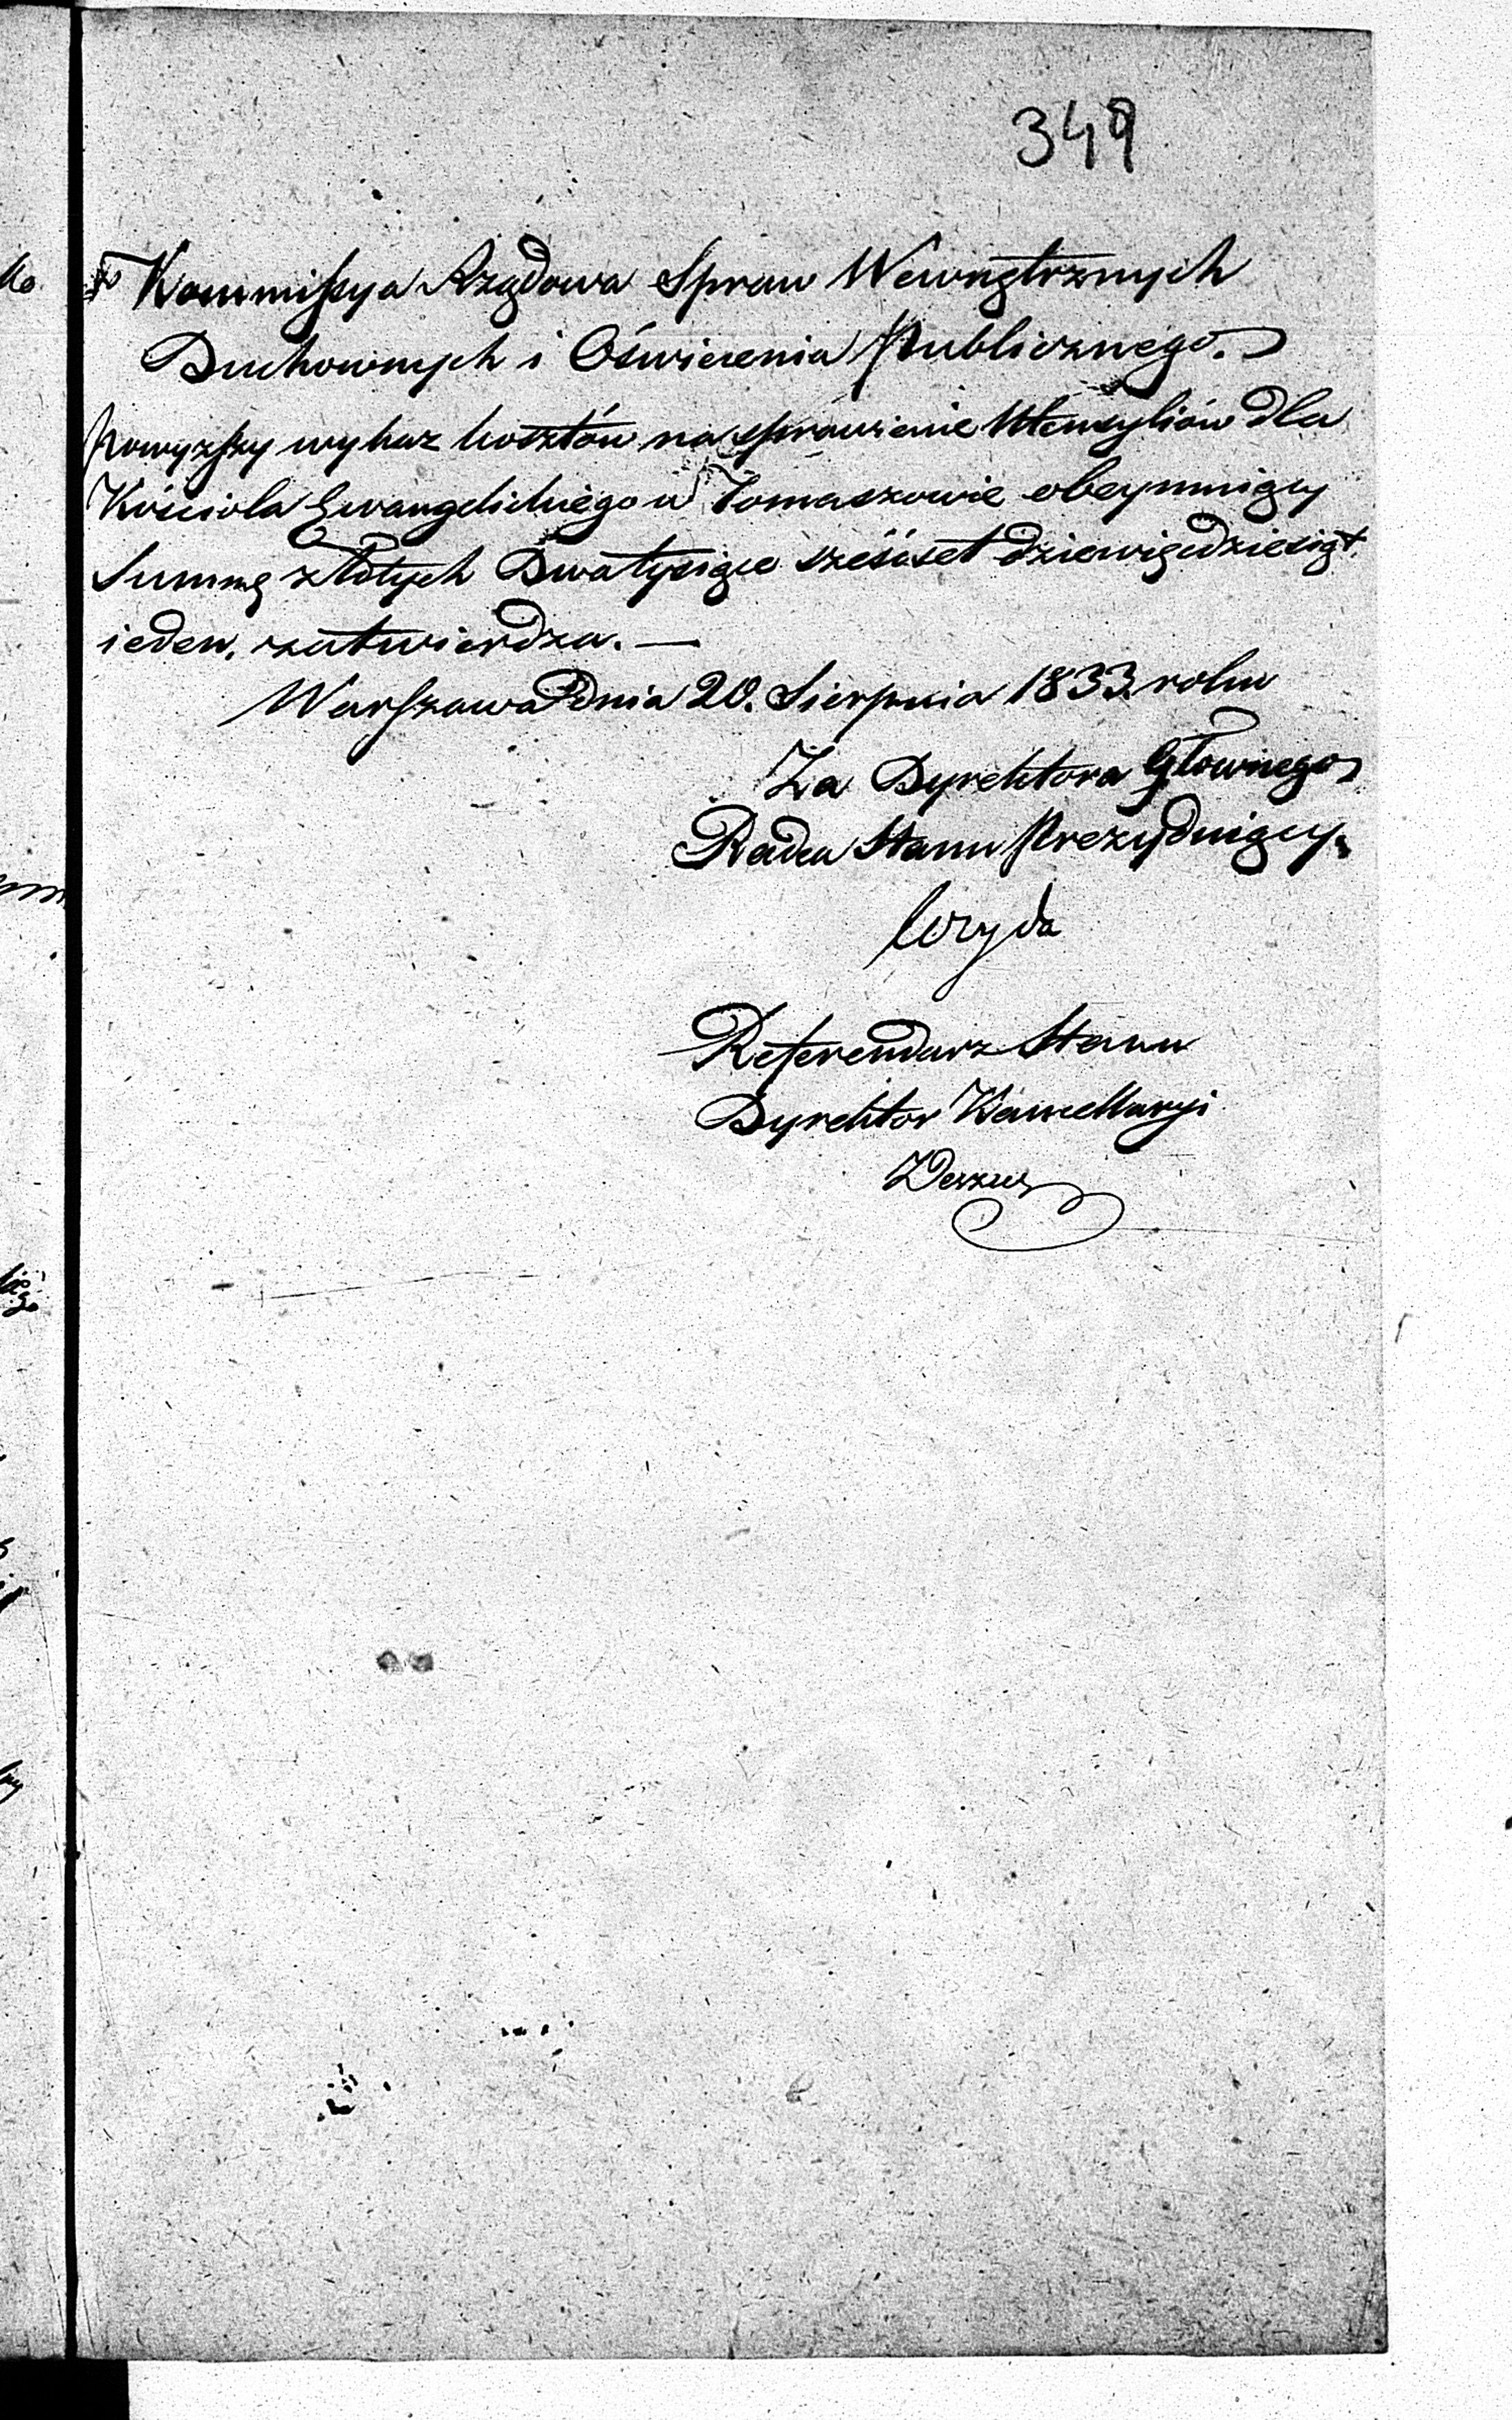 349
Kommissya Rządowa Spraw Wewnętrznych
Duchownych i Oświecenia Publicznego.
Powyższy wykaz kosztów na sprawienie Utensyliów dla
Kościoła Ewangelickiego w Tomaszowie obeymuiący
Summę złotych Dwatysiące sześćset dziewięćdziesiąt
ieden, zatwierdza. —
Warszawa dnia 20. Sierpnia 1833. roku
Za Dyrektora Głownego
Radca Stanu Prezyduiący
Referendarz Stanu
Dyrektor Kancellaryi